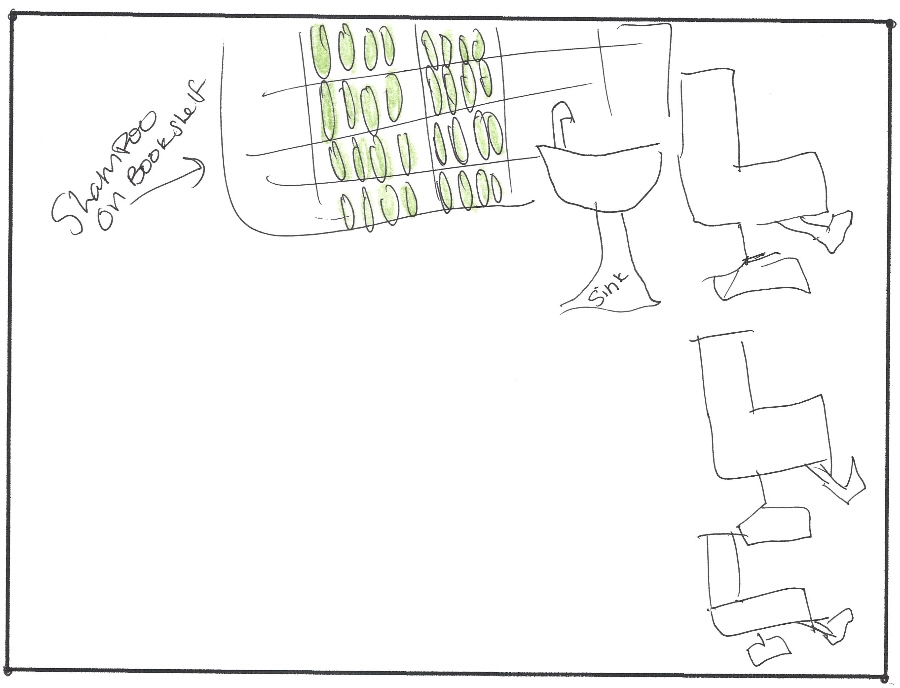 ShamPoo
on Bookshelf
Sink